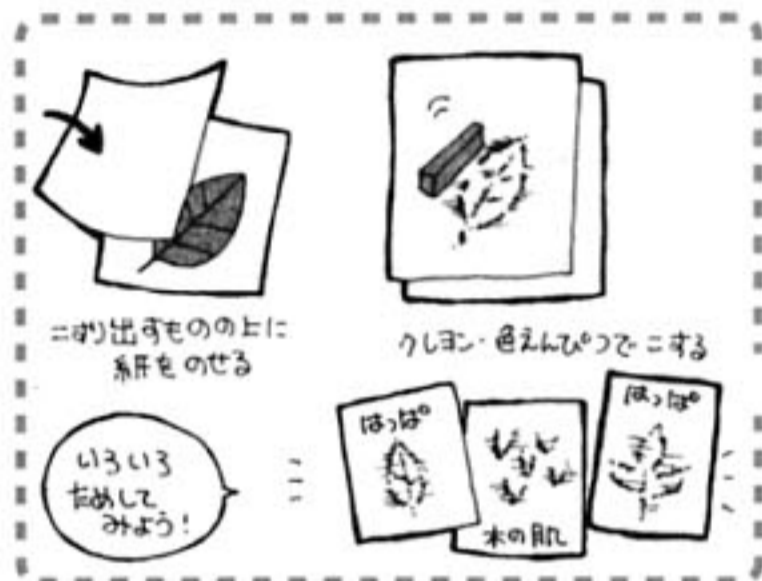 こすり出すものの上に
紙をのせる
クレヨン・色えんぴつでこする
いろいろ
ためして
みよう！
はっぱ
木の肌
はっぱ